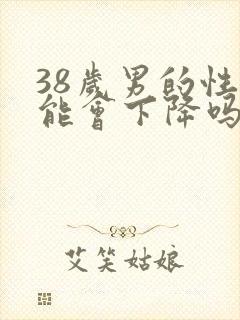 38歲男的性
能會下降吗
艾笑姑娘